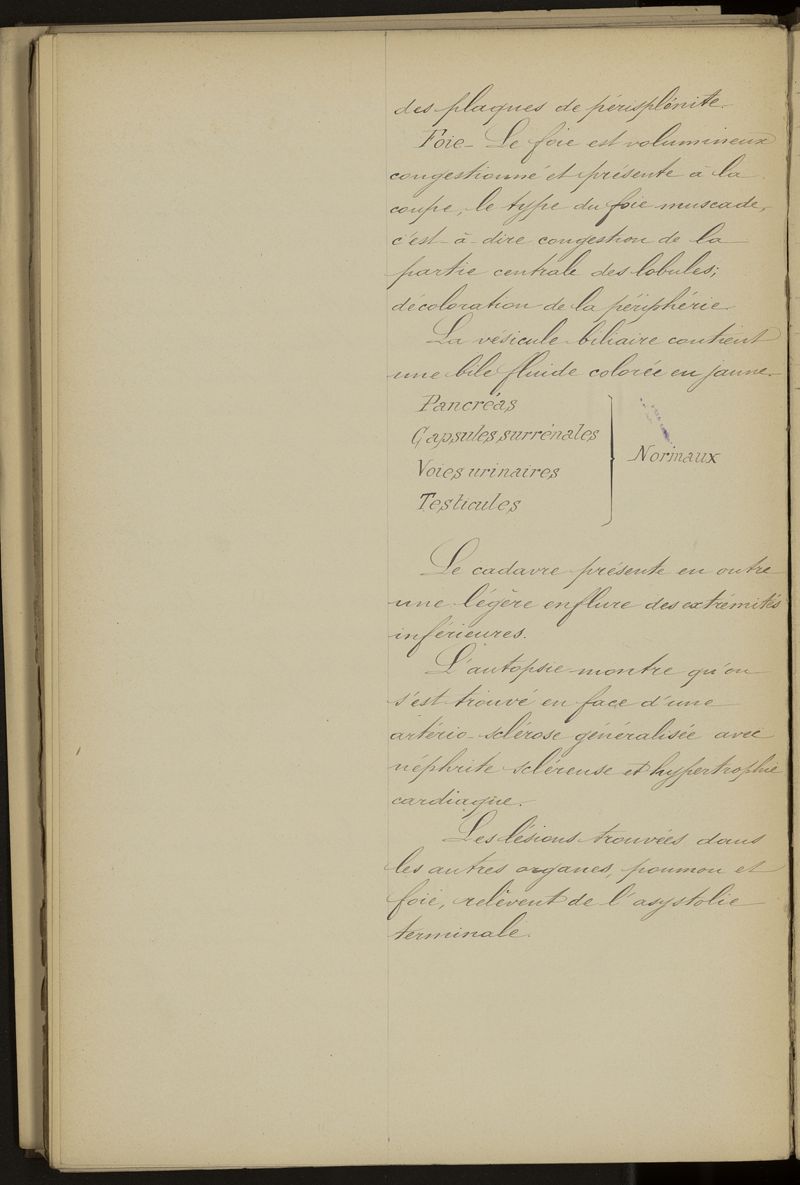 des plaques de périsplénite.
Foie - Le foie est volumineux
congestionné et présente à la
coupe, le type du foie muscade,
c'est-à-dire congestion de la
partie centrale des lobules;
décoloration de la périphérie.
La vésicule biliaire contient
une bile fluide colorée en jaune.
Pancréas
Capsules surrénales
Voies urinaires
Testicules
Normaux
Le cadavre présente en outre
une légère enflure des extrémités
inférieures.
L'autopsie montre qu'on
s'est trouvé en face d'une
artério-sclérose généralisée avec
néphrite scléreuse et hypertrophie
cardiaque.
Les lésions trouvées dans
les autres organes, poumon et
foie, relèvent de l'asystolie
terminale.